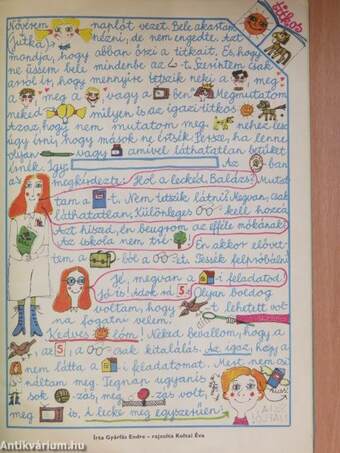 Nővérem naplót vezet. Bele akartam
(Jutka) nézni, de nem engedte. Azt
mondja, hogy abban őrzi a titkait. És, hogy
ne üssem bele mindenbe az -t. Szerintem csak
arról ír, hogy mennyire tetszik neki a meg
a meg a vagy a ben. Megmutatom
neked milyen is az igazi titkos
Azaz, hogy nem mutatom meg, nehéz lesz
úgy írni, hogy mások ne lássák. Persze, ha lenne
olyan vagy amivel láthatatlan betűket
írnék. Így Az ban
megkérdezte: Hol a leckéd, Balázs? Mutat
tam a t. Nem tetszik látni? Megvan, csak
láthatatlan, Különleges kell hozzá
Azt hiszed, én beugrom az efféle mókának?
Az iskola nem tré ! Én akkor elővet-
tem a ből a t. Tessék felpróbálni
Jé, megvan a feladatod!
Jó is! Adok rá 5! Olyan boldog
voltam, hogy t lehetett vol-
na fogatni velem.
Kedves lóm! Neked bevallom, hogy a
, az 5, a csak kitalálás. Az igaz, hogy a
nem látta a feladatomat. Mert nem csi-
náltam meg. Tegnap ugyanis
sok zás, meg zás volt,
meg is. A lecke meg egyszerűen
Titkos
Írta Gyárfás Endre – rajzolta Koltai Éva
antikvarium.hu